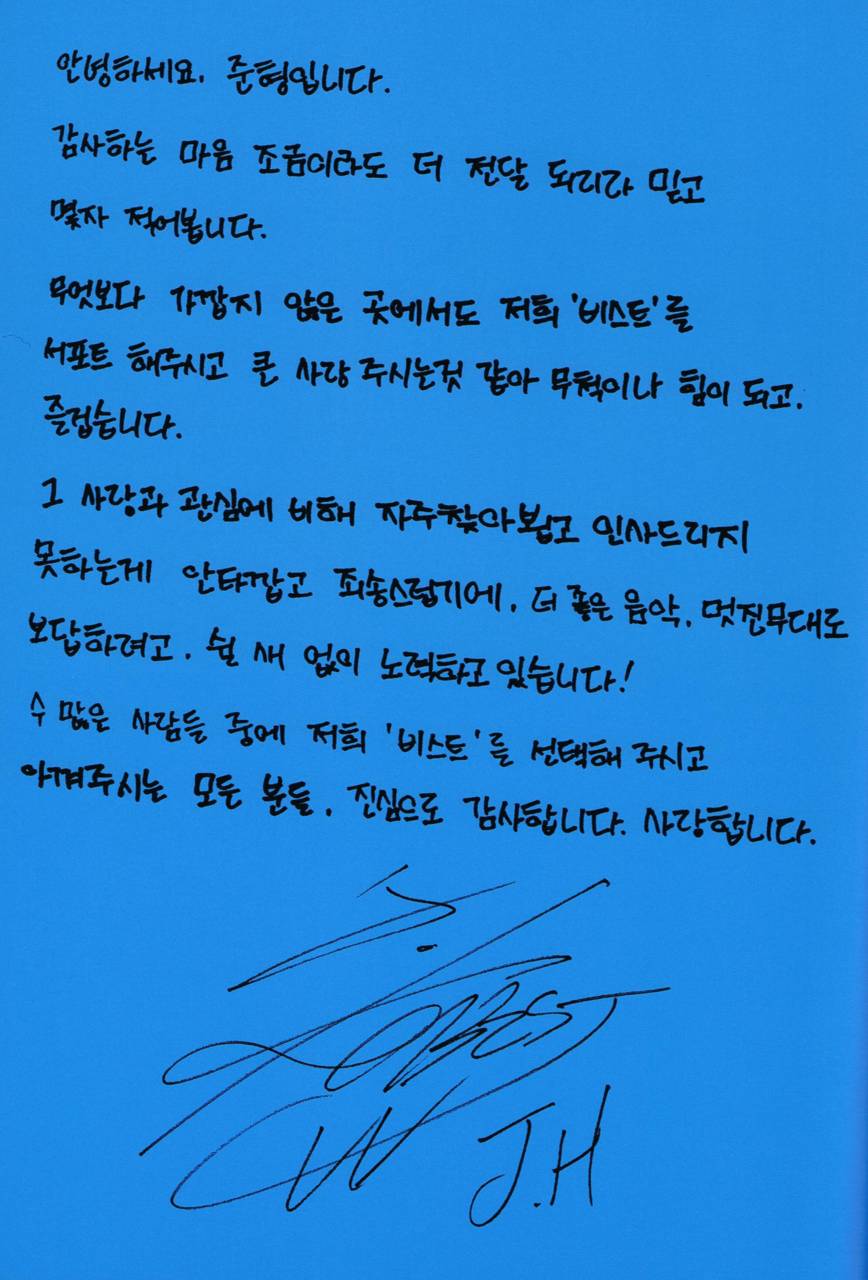 안녕하세요. 준형입니다.
감사하는 마음 조금이라도 더 전달 되리라 믿고
몇자 적어봅니다.
무엇보다 가깝지 않은 곳에서도 저희 '비스트'를
서포트 해주시고 큰 사랑 주시는것 같아 무척이나 힘이 되고.
즐겁습니다.
그 사랑과 관심에 비해 자주찾아뵙고 인사드리지
못하는게 안타깝고 죄송스럽기에, 더 좋은 음악, 멋진무대로
보답하려고, 쉴 새 없이 노력하고 있습니다!
수 많은 사람들 중에 저희 '비스트'를 선택해 주시고
아껴주시는 모든 분들, 진심으로 감사합니다. 사랑합니다.
J.H